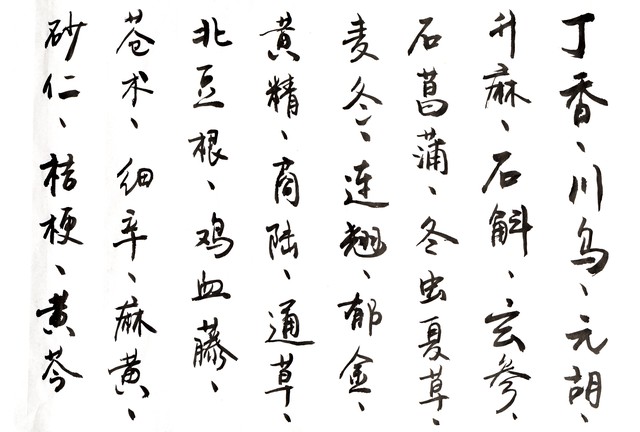 丁香、川乌、元胡、
升麻、石斛、玄参、
石菖蒲、冬虫夏草、
麦冬、连翘、郁金、
黄精、商陆、通草、
北豆根、鸡血藤、
苍术、细辛、麻黄、
砂仁、桔梗、黄芩